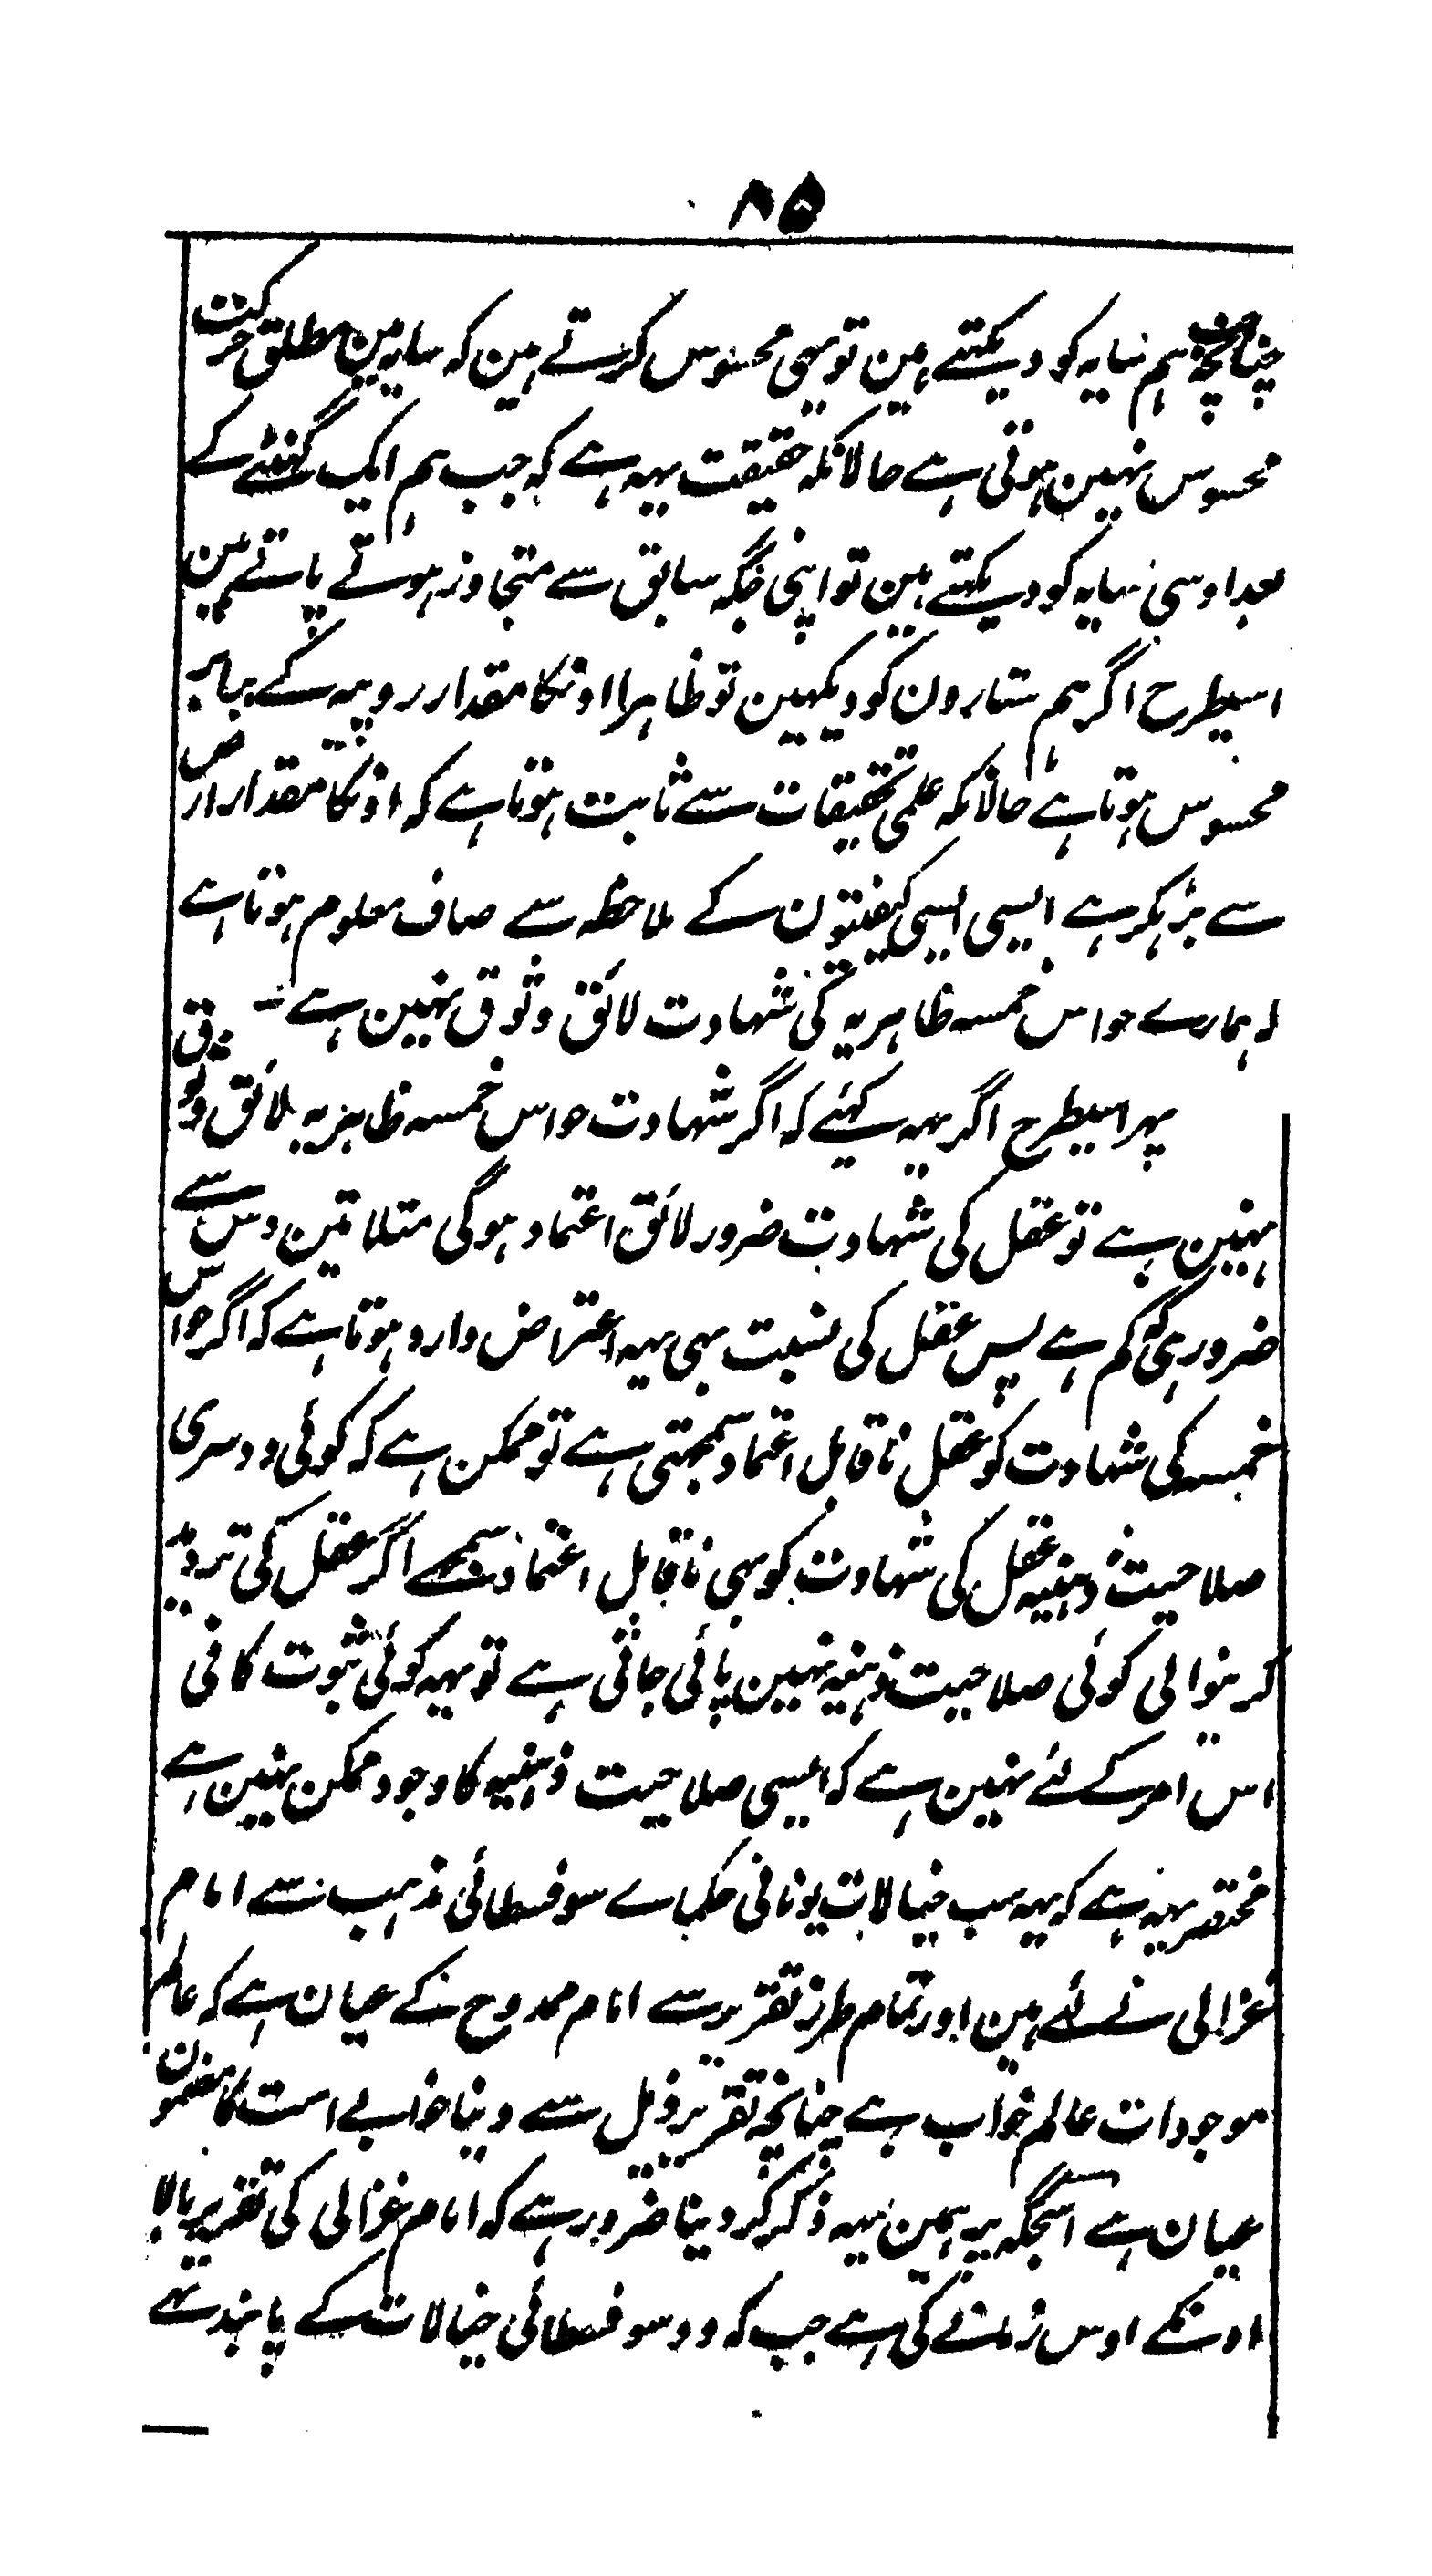 ۸۵
چنانچہ جب ہم سایہ کو دیکہتے ہین تو یہی محسوس کرتے ہین کہ سایہ مین مطلق حرکت
محسوس نہین ہوتی ہے حالانکہ حقیقت یہہ ہے کہ جب ہم ایک گہنٹے کے
بعد اوسی سایہ کو دیکہتے ہین تو اپنی جگہ سابق سے متجاوز ہوتے پاتے ہین
اسیطرح اگر ہم ستارون کو دیکہین تو ظاہرا اونکا مقدار روپیہ کے برابر
محسوس ہوتا ہے حالانکہ علمی تحقیقات سے ثابت ہوتا ہے کہ اونکا مقدار ارض
سے بڑہکر ہے ایسی ایسی کیفیتون کے ملاحظہ سے صاف معلوم ہوتا ہے
کہ ہمارے حواس خمسہ ظاہریہ کی شہادت لائق وثوق نہین ہے ۔
پہر اسیطرح اگر یہہ کہئے کہ اگر شہادت حواس خمسہ ظاہریہ لائق وثوق
نہین ہے تو عقل کی شہادت ضرور لائق اعتماد ہوگی مثلا تین دس سے
ضرور ہی کہ کم ہے پس عقل کی نسبت بہی یہہ اعتراض وارد ہوتا ہے کہ اگر حواس
خمسہ کی شہادت کو عقل ناقابل اعتماد سمجہتی ہے تو ممکن ہے کہ کوئی دوسری
صلاحیت ذہنیہ عقل کی شہادت کو بہی ناقابل اعتماد سمجہے اگر عقل کی تردید
کرنیوالی کوئی صلاحیت ذہنیہ نہین پائی جاتی ہے تو یہہ کوئی ثبوت کافی
اس امر کے لئے نہین ہے کہ ایسی صلاحیت ذہنیہ کا وجود ممکن نہین ہے
مختصر یہہ ہے کہ یہہ سب خیالات یونانی حکماے سوفسطائی مذہب سے امام
غزالی نے لئے ہین اور تمام طرز تقریر سے امام ممدوح کے عیان ہے کہ عالم
موجودات عالم خواب ہے چنانچہ تقریر ذیل سے دنیا خوابے است کا مضمون
عیان ہے اسجگہ پر ہمین یہہ ذکر کر دینا ضرور ہے کہ امام غزالی کی تقریر بالا
اونکے اوس زمانے کی ہے جب کہ وہ سوفسطائی خیالات کے پابند تہے